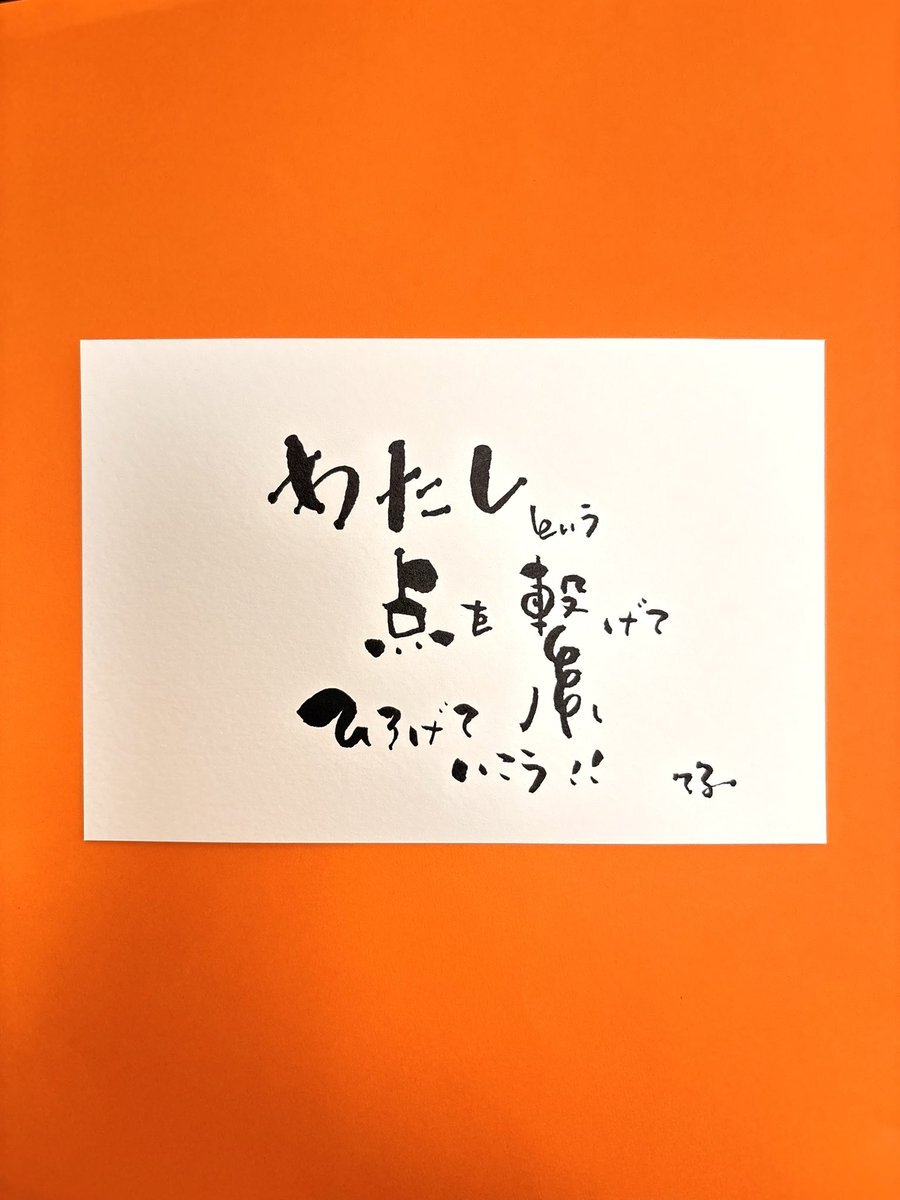 わたしという
点を繋げて
ひろげて
いこう!!
てる